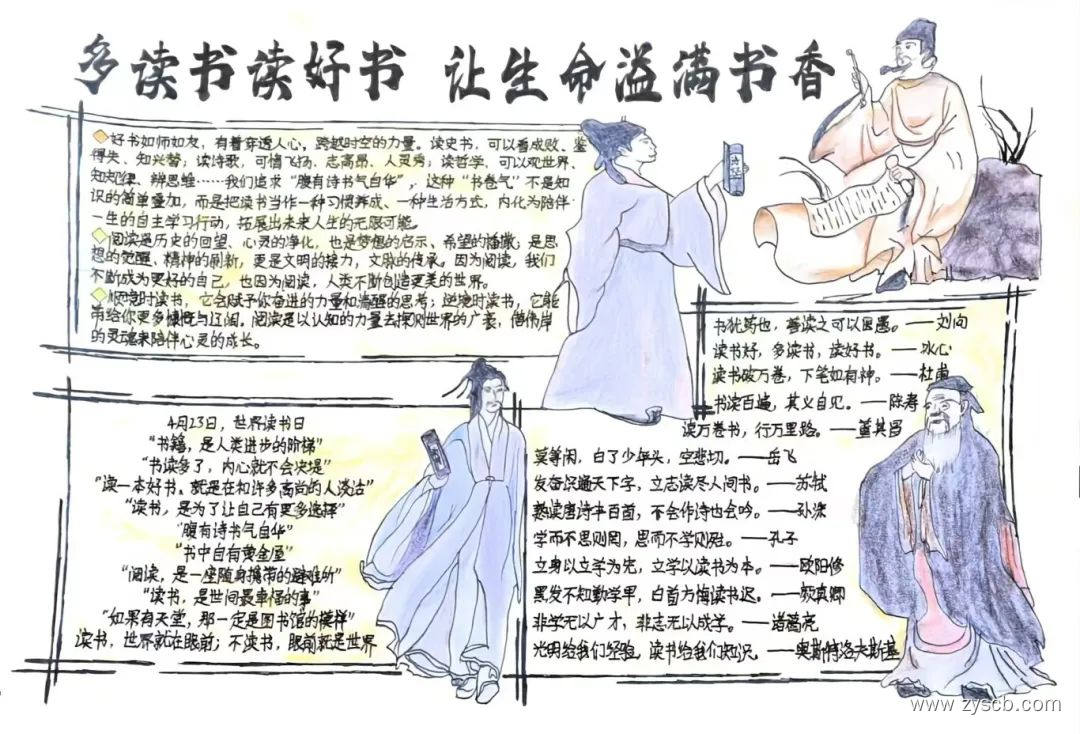 多读书读好书 让生命溢满书香
好书如师如友，有着穿透人心，跨越时空的力量。读史书，可以看成败、鉴
得失、知兴替；读诗歌，可情飞扬、志高昂、人灵秀；读哲学，可以观世界、
知规律、辨思维……我们追求“腹有诗书气自华”，这种“书卷气”不是知
识的简单叠加，而是把读书当作一种习惯养成、一种生活方式，内化为陪伴
一生的自主学习行动，拓展出未来人生的无限可能。
阅读是历史的回望、心灵的净化，也是梦想的启示、希望的播撒；是思
想的觉醒、精神的刷新，更是文明的接力，文脉的传承。因为阅读，我们
不断成为更好的自己，也因为阅读，人类不断创造更美的世界。
顺境时读书，它会赋予你奋进的力量和清醒的思考；逆境时读书，它能
带给你更多慷慨与辽阔。阅读是以认知的力量去探测世界的广袤，借伟岸
的灵魂来陪伴心灵的成长。
六经
书犹药也，善读之可以医愚。——刘向
读书好，多读书，读好书。——冰心
读书破万卷，下笔如有神。——杜甫
书读百遍，其义自见。——陈寿
读万卷书，行万里路。——董其昌
4月23日，世界读书日
“书籍，是人类进步的阶梯”
“书读多了，内心就不会决堤”
“读一本好书。就是在和许多高尚的人谈话”
“读书，是为了让自己有更多选择”
“腹有诗书气自华”
“书中自有黄金屋”
“阅读，是一座随身携带的避难所”
“读书，是世间最幸福的事”
“如果有天堂，那一定是图书馆的模样”
读书，世界就在眼前；不读书，眼前就是世界
莫等闲，白了少年头，空悲切。——岳飞
发奋识遍天下字，立志读尽人间书。——苏轼
熟读唐诗半百首，不会作诗也会吟。——孙洙
学而不思则罔，思而不学则殆。——孔子
立身以立学为先，立学以读书为本。——欧阳修
黑发不知勤学早，白首方悔读书迟。——颜真卿
非学无以广才，非志无以成学。——诸葛亮
光明给我们经验，读书给我们知识。——奥斯特洛夫斯基
www.zyscb.com